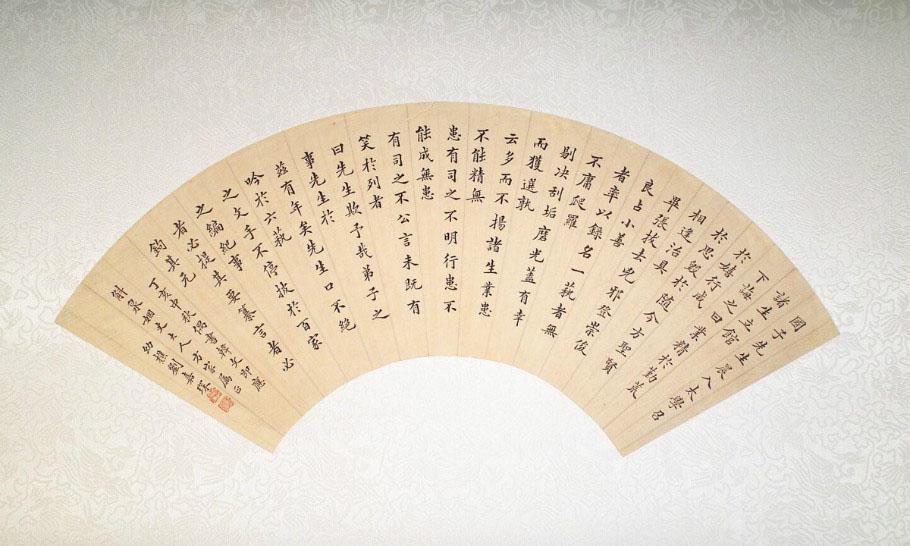 國子先生晨入太學召
諸生立館
下誨之曰業精於勤荒
於嬉行成
於思毀於隨今方聖賢
相逢治具
畢張拔去兇邪登崇俊
良占小善
者率以錄名一蓺者無
不庸爬羅
剔决刮垢磨光蓋有幸
而獲選孰
云多而不揚諸生業患
不能精無
患有司之不明行患不
能成無患
有司之不公言未既有
笑於列者
曰先生欺予哉弟子之
事先生於
茲有年矣先生口不絕
吟於六蓺
之文手不停披於百家
之編紀事
者必提其要纂言者必
鈎其元
丁亥中秋偶書韓文即應
斛泉姻丈大人方家屬正
幼樵劉嘉琛